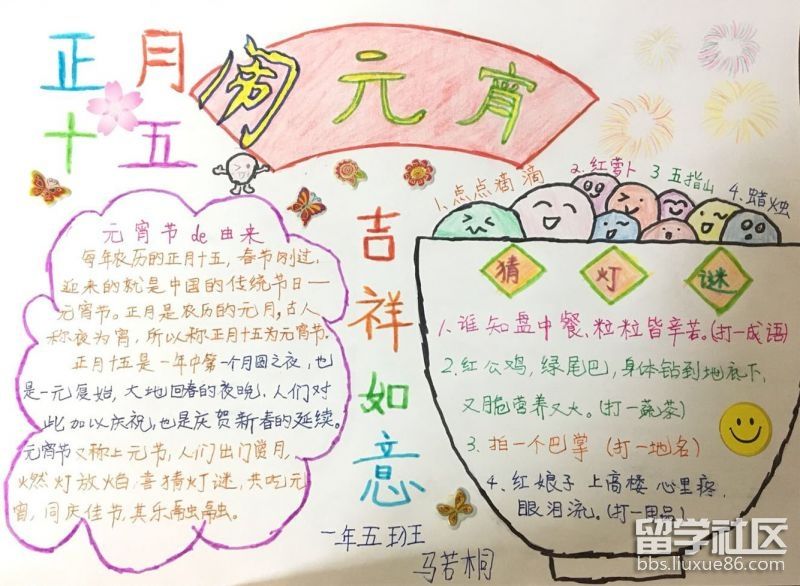 正月
十五
闹元宵
元宵节de由来
每年农历的正月十五，春节刚过，
迎来的就是中国的传统节日—
元宵节。正月是农历的元月，古人
称夜为宵，所以称正月十五为元宵节.
正月十五是一年中第一个月圆之夜，也
是一元复始，大地回春的夜晚，人们对
此加以庆祝，也是庆贺新春的延续。
元宵节又称上元节，人们出门赏月，
燃灯放焰，喜猜灯谜，共吃元
宵，同庆佳节，其乐融融。
吉祥如意
1.点点滴滴
2.红萝卜
3 五指山
4.蜡烛
猜灯谜
1.谁知盘中餐、粒粒皆辛苦。(打一成语)
2.红公鸡，绿尾巴，身体钻到地底下，
又脆营养又大。(打一蔬菜)
3、拍一个巴掌 (打一地名)
4、红娘子 上高楼 心里疼，
眼泪流。(打一用品)
一年五班
马若桐
留学社区
bbs.liuxue86.com